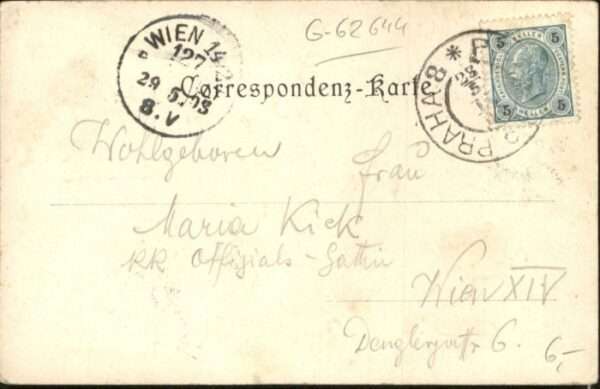 G-62644
WIEN 14/2
127
29 5 03
8.V
PRAHA 8
5 HELLER 5
5 HELLER 5
Correspondenz-Karte
Wohlgeboren Frau
Maria Kick
KK Offizials-Gattin
Wien XIV
6.
6,-